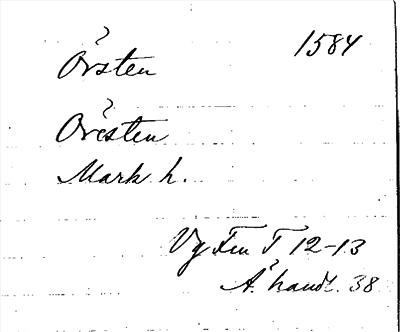 Örsten 1584
Öresten
Mark h.
Vg Fru T 12-13
Ä. handl. 38